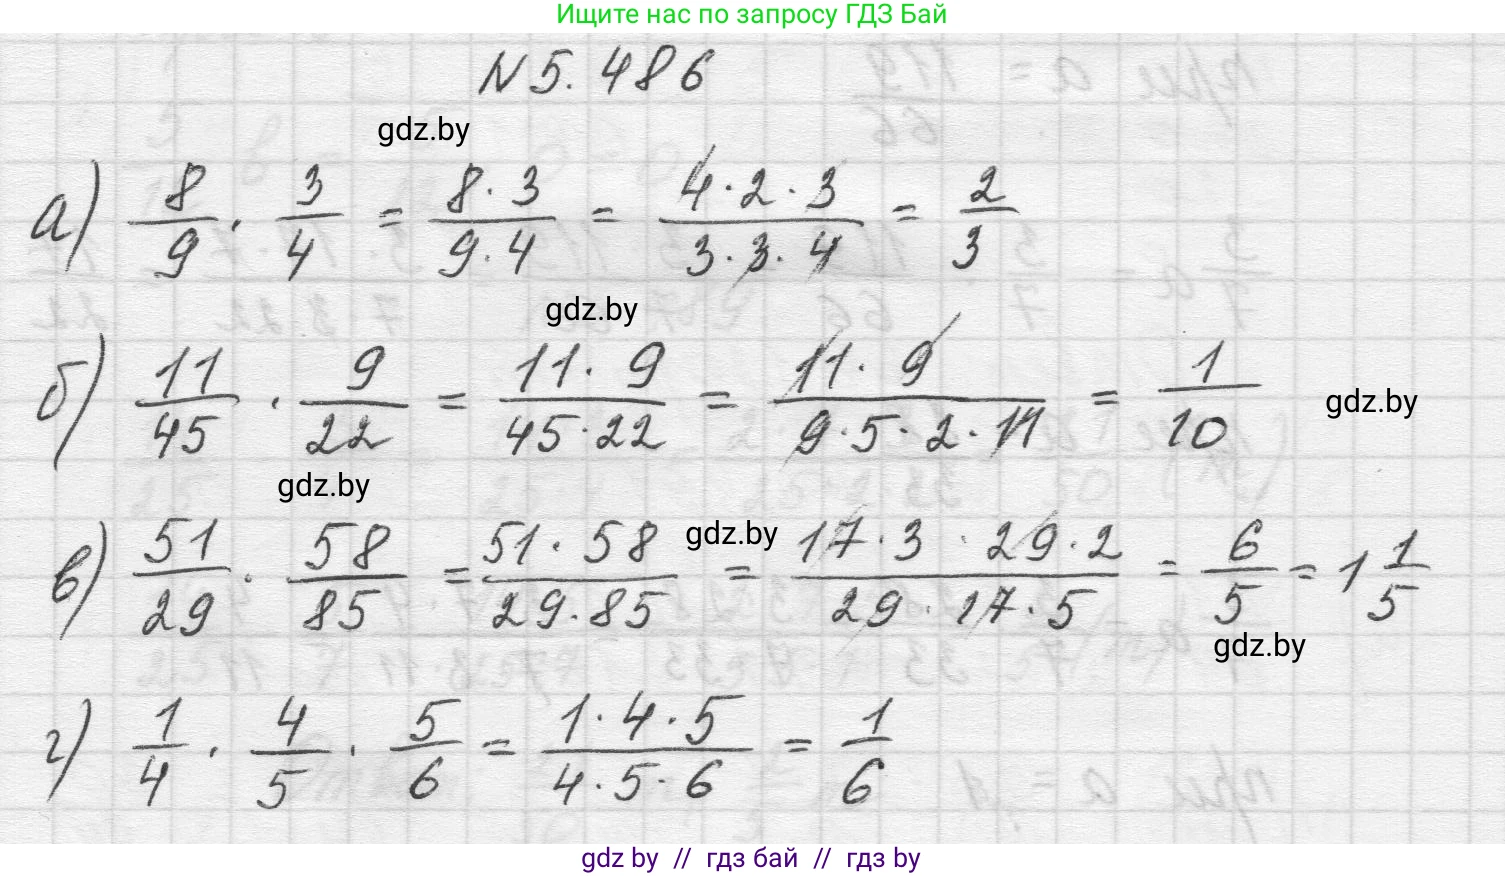 Ищите нас по запросу ГДЗ Бай
N 5. 486
gdz.by
а) 8/9 · 3/4 = 8·3/9·4 = 4·2·3/3·3·4 = 2/3
gdz.by
б) 11/45 · 9/22 = 11·9/45·22 = 11·9/9·5·2·11 = 1/10
gdz.by
gdz.by
gdz.by
в) 51/29 · 58/85 = 51·58/29·85 = 17·3·29·2/29·17·5 = 6/5 = 1 1/5
gdz.by
г) 1/4 · 4/5 · 5/6 = 1·4·5/4·5·6 = 1/6
gdz by // гдз бай // гдз by